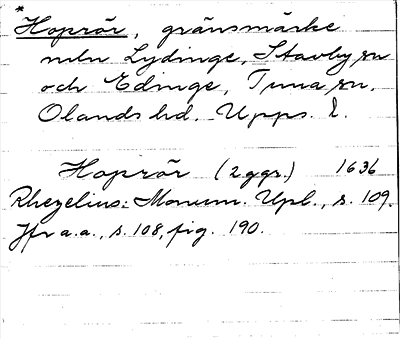 *
Hoprör, gränsmärke
mln Lydinge, Stavby sn
och Edinge, Tuna sn.
Olands hd. Upps. l.
Hoprör (2 ggr.) 1636
Rhezelius: Monum. Upl., s. 109.
Jfr a.a., s. 108, fig. 190.